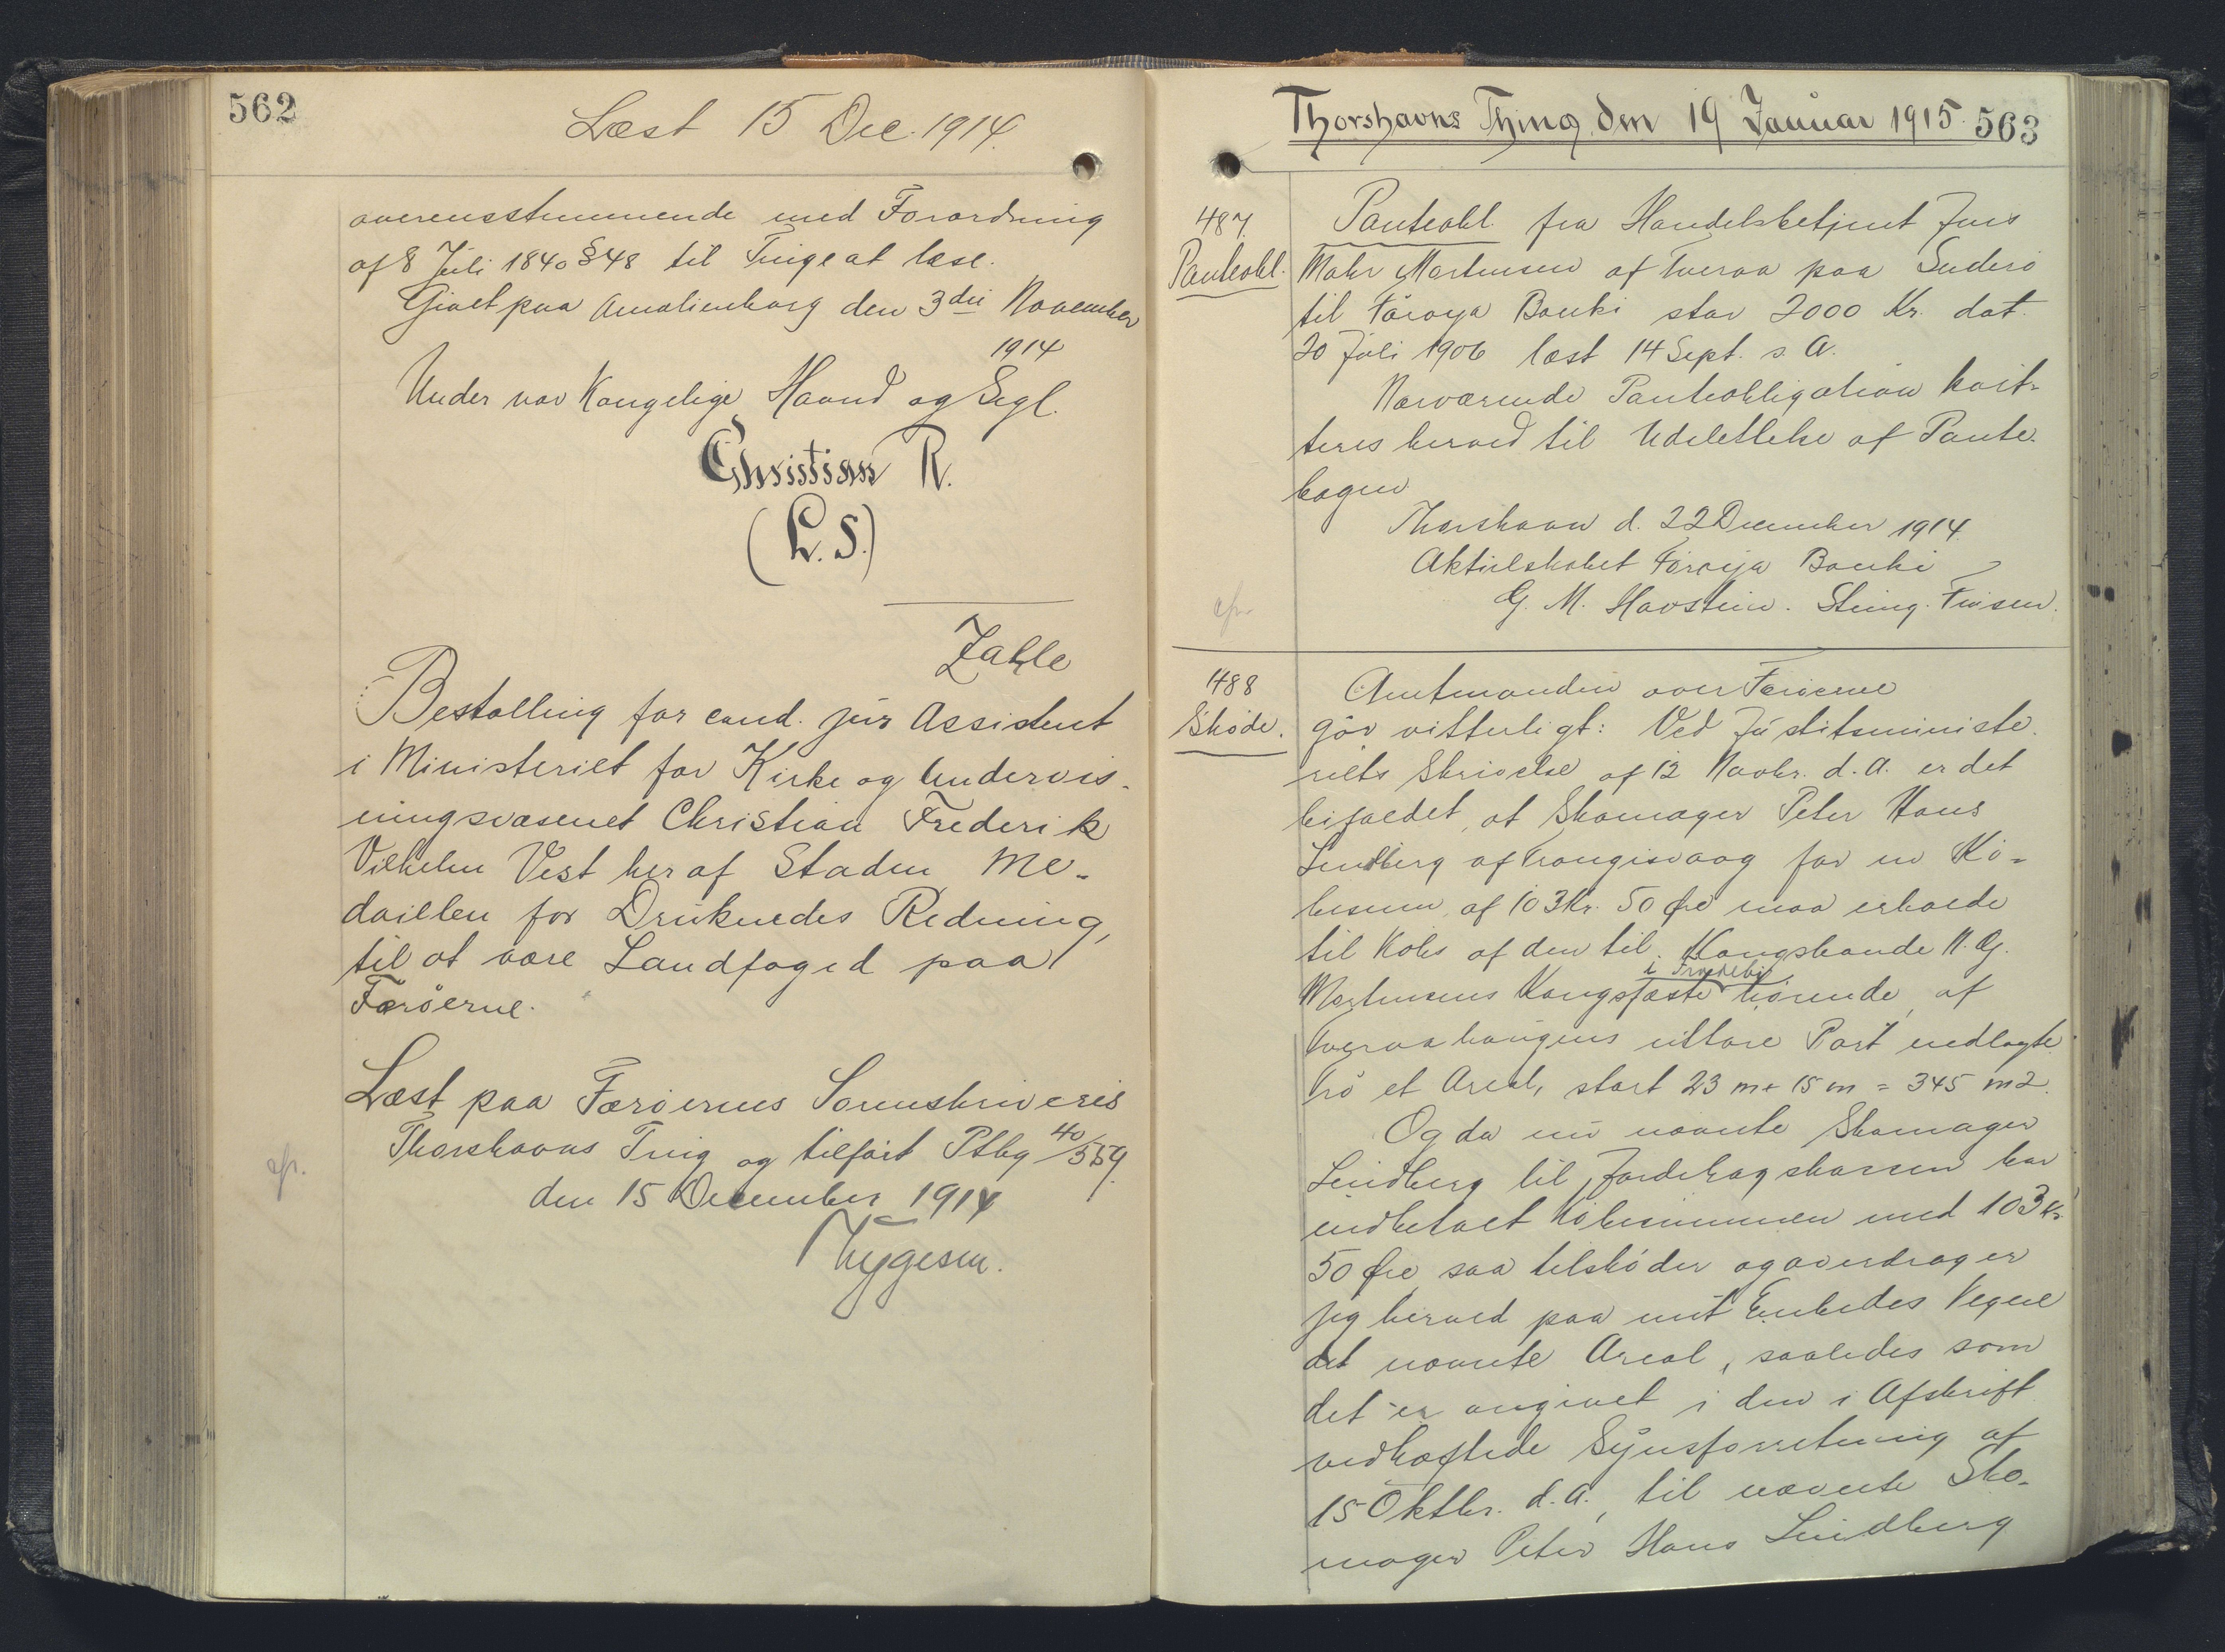 562
Læst 15 Dec. 1914.
overensstemmende med Forordning
af 8 Juli 1840 § 48 til Tinge at læse.
Givet paa Amalienborg den 3die November
1914
Under vor Kongelige Haand og Segl.
Christian R.
(L.S.)
Zahle
Bestalling for cand. jur Assistent
i Ministeriet for Kirke og Undervis-
ningsvæsenet Christian Frederik
Vilhelm Vest her af Staden Me-
daillen for Druknedes Redning,
til at være Landfoged paa
Færøerne.
Læst paa Færøernes Sorenskriveris
Thorshavns Ting og tilført Ptbg 40/559
cfr.
den 15 December 1914
Thygesen.
Thorshavns Thing den 19 Januar 1915. 563
487.
Panteobl.
Panteobl. fra Handelsbetjent Jens
Mohr Mortensen af Tveraa paa Suderø
til Føroya Banki stor 2000 Kr. dat.
20 Juli 1906 læst 14 Sept. s. A.
Nærværende Panteobligation kvit-
teres herved til Udslettelse af Pante-
bogen
Thorshavn d. 22 December 1914.
Aktielskabet Føroya Banki
cfr.
G. M. Havstein. Steing.
488
Skøde.
Amtmanden over Færøerne
gør vitterligt: Ved Justitsministe-
riets Skrivelse af 12 Novbr. d. A. er det
bifaldet, at Skomager Peter Hans
Lindberg af Trangisvaag for en Kø-
besum af 103 Kr. 50 Øre maa erholde
til Købs af den til Kongsbonde N. G.
i Frodebø
Mortensens Kongsfæste hørende, af
Tveraa haugens Part udlagte
Trø et Areal, stort 23 m × 15 m = 345 m2.
Og da nu nævnte Skomager
Lindberg til Jordebogskassen har
indbetalt Købesummen med 103 Kr.
50 Øre, saa tilskøder og overdrager
jeg herved paa mit Embedes Vegne
det nævnte Areal, saaledes som
det er angivet i den i Afskrift
vedhæftede Synsforretning af
15 Oktbr. d. A., til nævnte Sko-
mager Peter Hans Lindberg